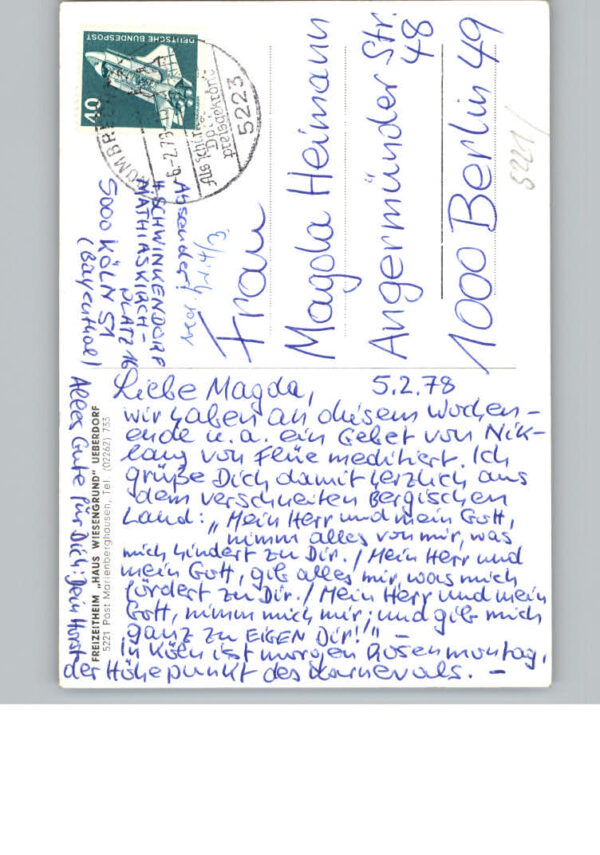 Liebe Magda, 5.2.78
wir haben an diesem Wochen-
ende u. a. ein Gebet von Nik-
laus von Flüe meditiert. Ich
grüße Dich damit herzlich aus
dem verschneiten Bergischen
Land: „Mein Herr und mein Gott,
nimm alles von mir, was
mich hindert zu Dir. / Mein Herr und
mein Gott, gib alles mir, was mich
fördert zu Dir. / Mein Herr und mein
Gott, nimm mich mir, und gib mich
ganz zu EIGEN Dir!" –
In Köln ist morgen Rosenmontag,
der Höhepunkt des Karnevals. –
Alles Gute für Dich: Dein Horst
FREIZEITHEIM „HAUS WIESENGRUND" UEBERDORF
5221 Post Marienberghausen, Tel. (02262) 733
Absender:
H. SCHWINKENDORF
MATHIASKIRCH-
PLATZ 16
5000 KÖLN 51
(Bayenthal)
DEUTSCHE BUNDESPOST
40
5223
NÜMBRECHT
-6.-2.78
Frau
Magda Heimann
Angermünder Str.
48
1000 Berlin 49
5221/